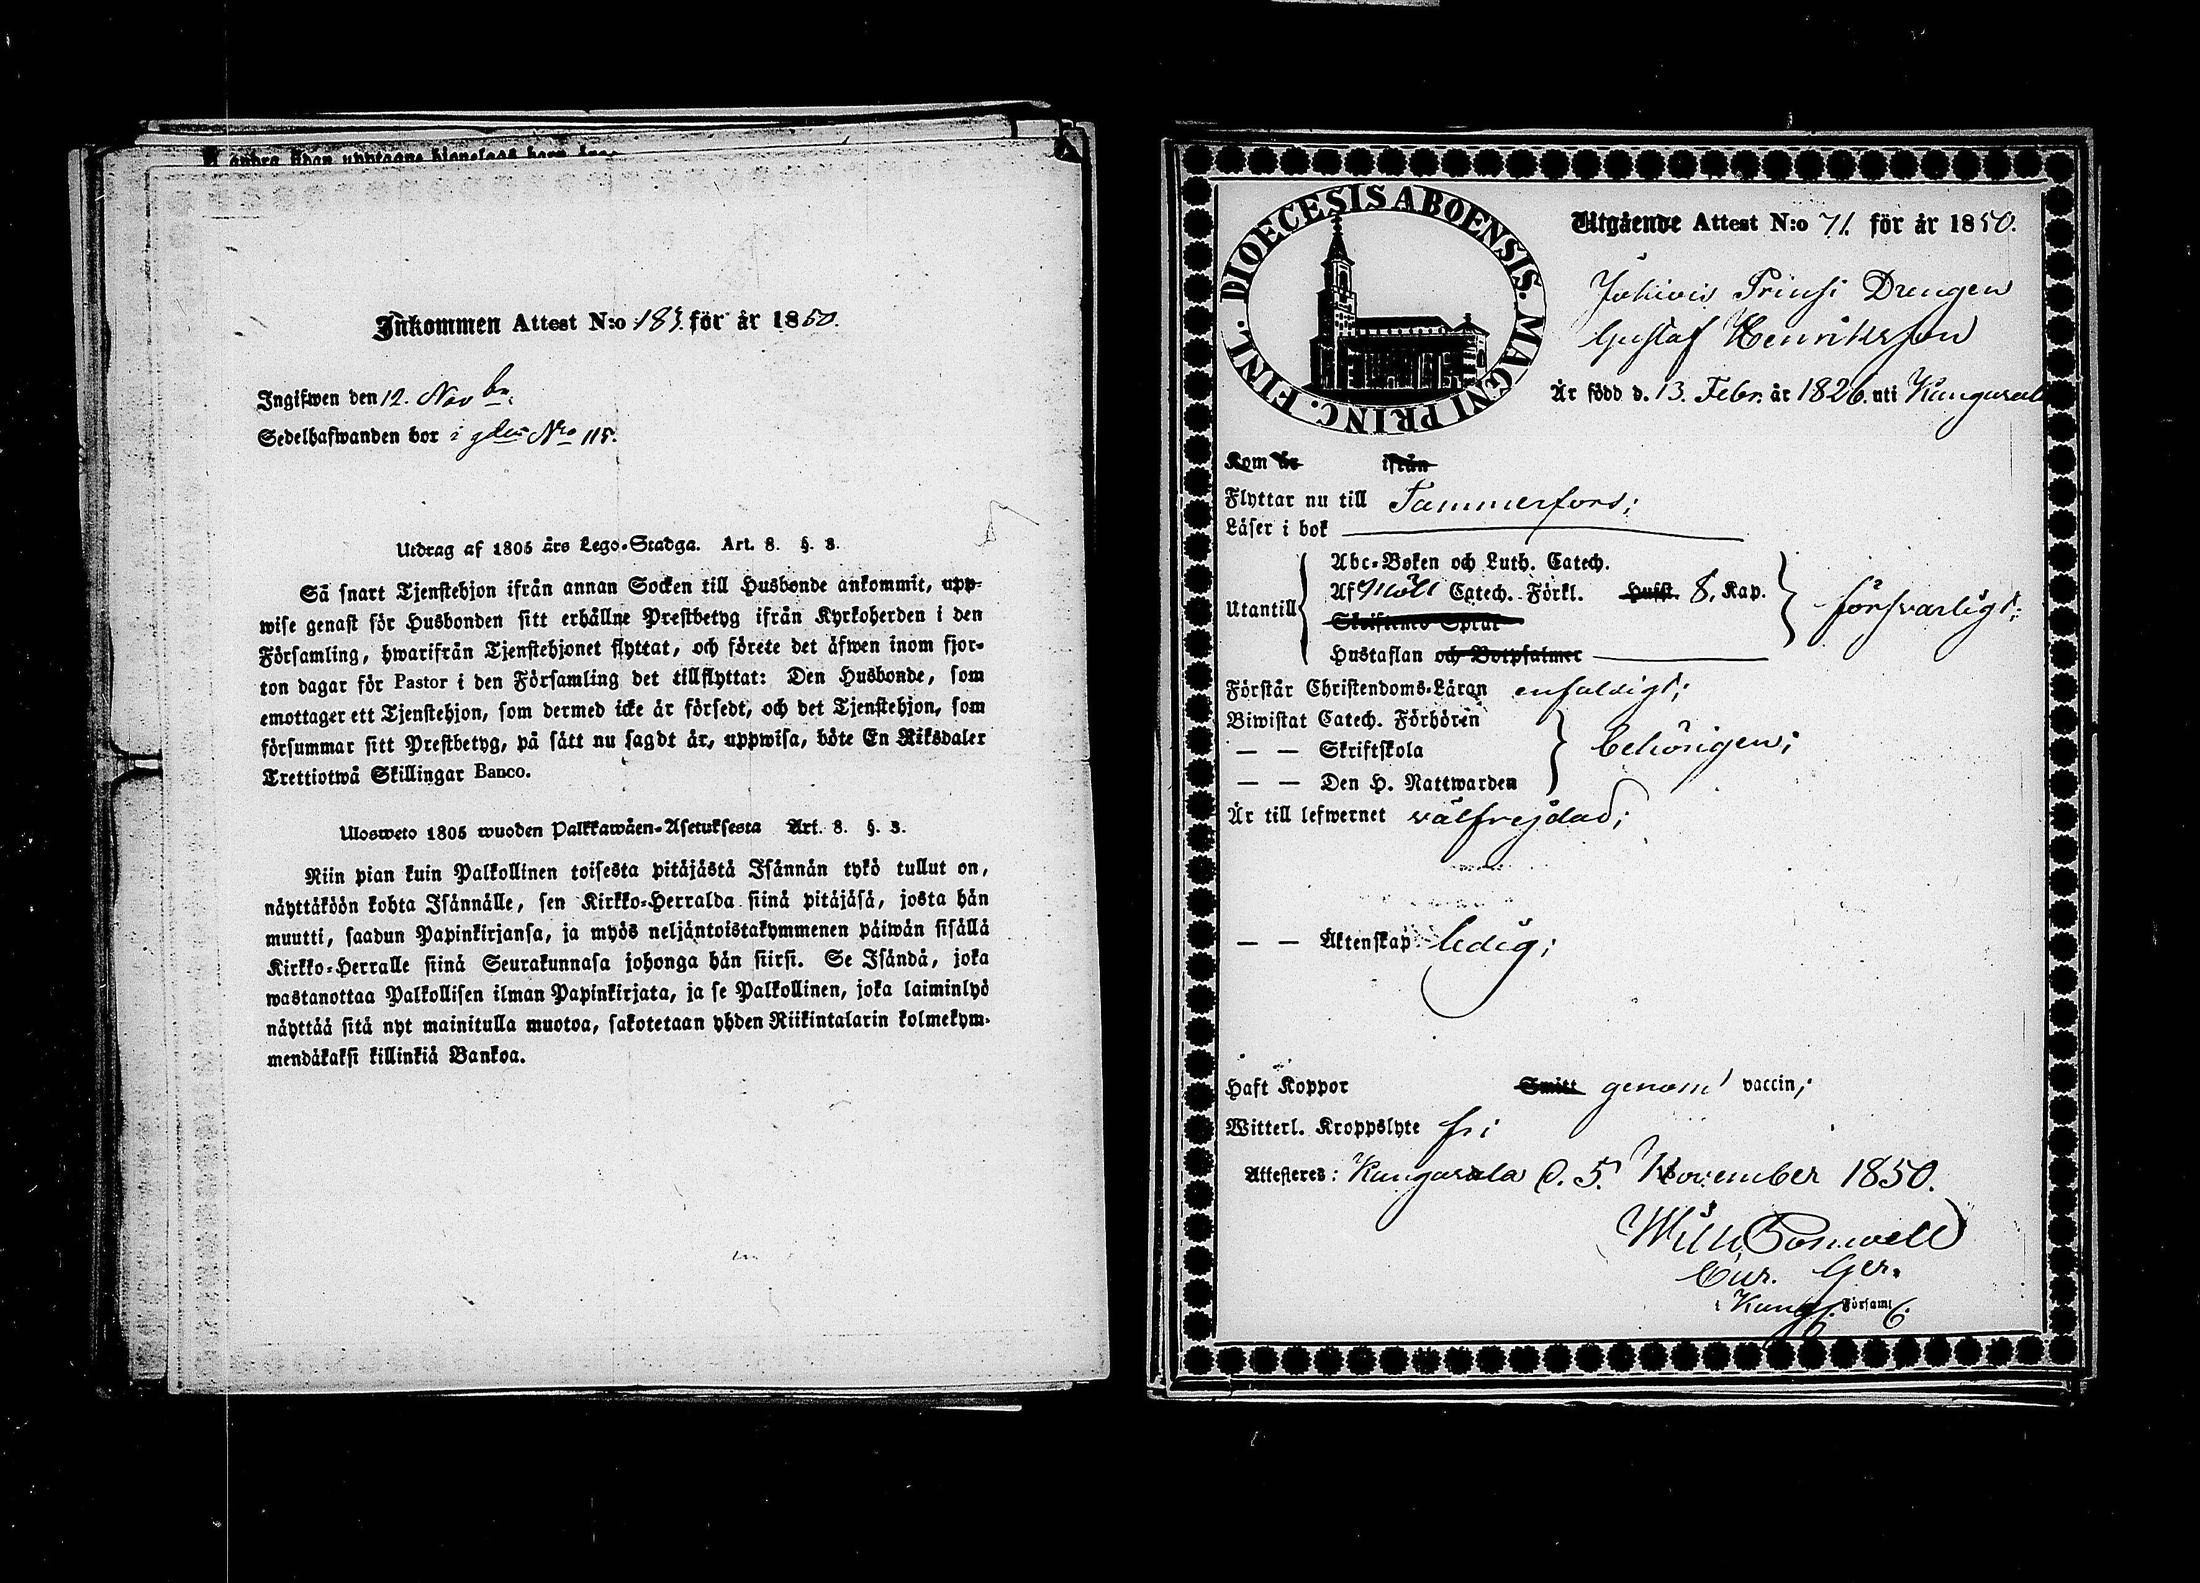 Inkommen Attest N:o 183. för år 1850.
Ingifwen den 12. Novbr.
Sedelhafwanden bor i gden Nro 115.
Utdrag af 1805 års Lego-Stadga. Art. 8. §. 3.
Så snart Tjenstehjon ifrån annan Socken till Husbonde ankommit, upp-
wise genast för Husbonden sitt erhållne Prestbetyg ifrån Kyrkoherden i den
Församling, hwarifrån Tjenstehjonet flyttat, och förete det äfwen inom fjor-
ton dagar för Pastor i den Församling det tillflyttat: Den Husbonde, som
emottager ett Tjenstehjon, som dermed icke är försedt, och det Tjenstehjon, som
försummar sitt Prestbetyg, på sätt nu sagdt är, uppwisa, böte En Riksdaler
Trettiotwå Skillingar Banco.
Ulosweto 1805 wuoden Palkkawäen-Asetuksesta Art. 8. §. 3.
Niin pian kuin Palkollinen toisesta pitäjästä Isännän tykö tullut on,
näyttäköön kohta Isännälle, sen Kirkko-Herralda siinä pitäjäsä, josta hän
muutti, saadun Papinkirjansa, ja myös neljäntoistakymmenen päiwän sisällä
Kirkko-Herralle siinä Seurakunnasa johonga hän siirsi. Se Isändä, joka
wastanottaa Palkollisen ilman Papinkirjata, ja se Palkollinen, joka laiminlyö
näyttää sitä nyt mainitulla muotoa, sakotetaan yhden Riikintalarin kolmekym-
mendäkaksi killinkiä Bankoa.
DIOECESIS ABOENSIS. MAGNI PRINC. FINL.
Utgående Attest N:o 71. för år 1850.
Prinsi Drengen
Gustaf Henriksson
Är född d. 13. Febr. år 1826. uti Kangasala
Kom år ifrån
Flyttar nu till Tammerfors;
Läser i bok
Abc-Boken och Luth. Catech.
Utantill Af Möll Catech. Förkl. Hufst. 8. Kap. försvarligt;
Skriftenes Språk
Hustaflan och Botpsalmer
Förstår Christendoms-Läran enfaldigt;
Biwistat Catech. Förhören
— — Skriftskola behörigen;
— — Den H. Nattwarden
Är till lefwernet välfrejdad;
— — Äktenskap ledig;
Haft Koppor Smitt genom vaccin;
Witterl. Kroppslyte fri
Attesteres: Kangasala d. 5. November 1850.
Cur. Ger.
i Kang. Församl.